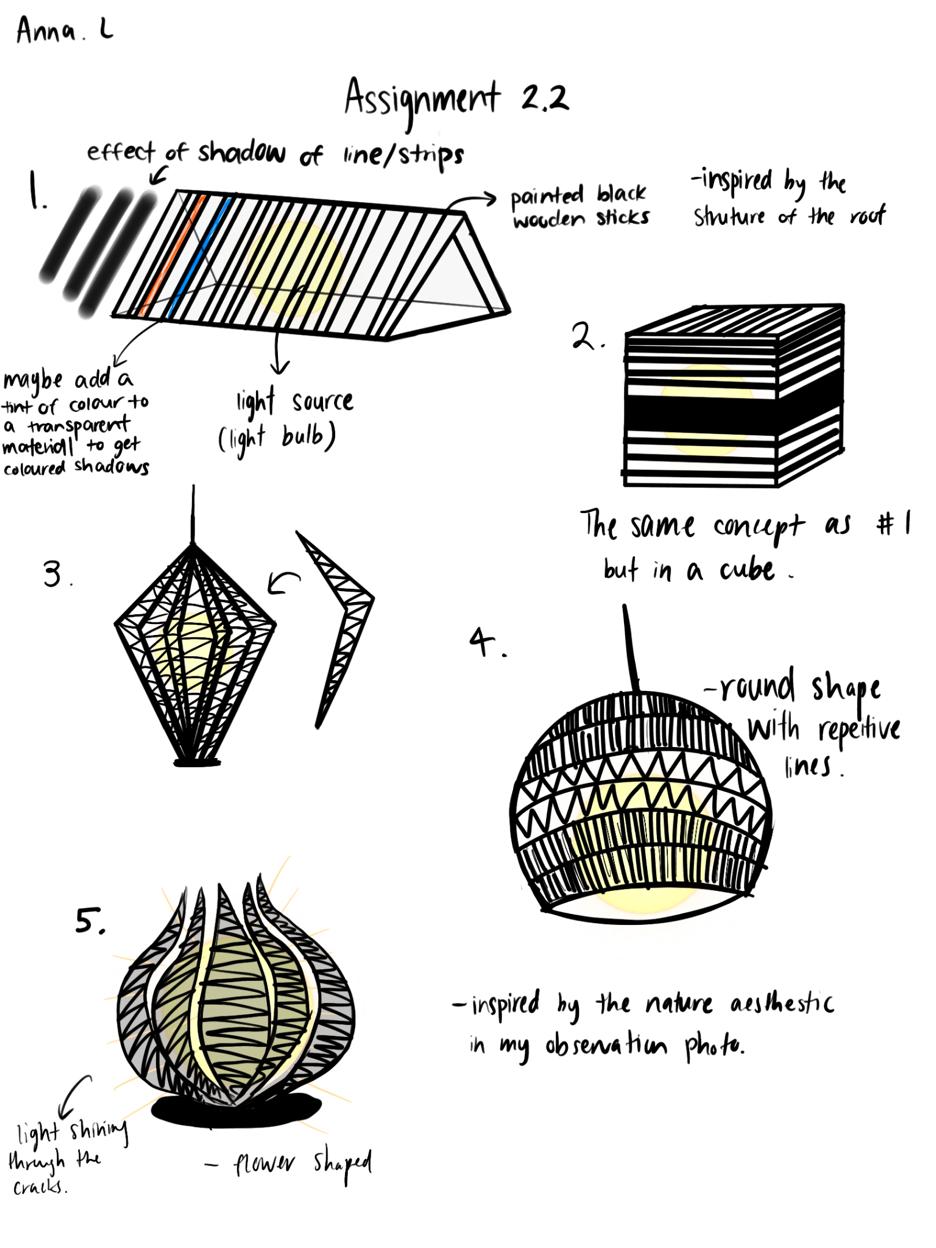 Anna. L
Assignment 2.2
effect of shadow of line/strips
1.
painted black
wooden sticks
-inspired by the
Struture of the roof
maybe add a
tint of colour to
a transparent
materiall to get
coloured shadows
light source
(light bulb)
2.
The same concept as #1
but in a cube.
3.
4.
-round shape
with repeitive
lines.
5.
-inspired by the nature aesthestic
in my observation photo.
light shining
through the
cracks.
- flower shaped